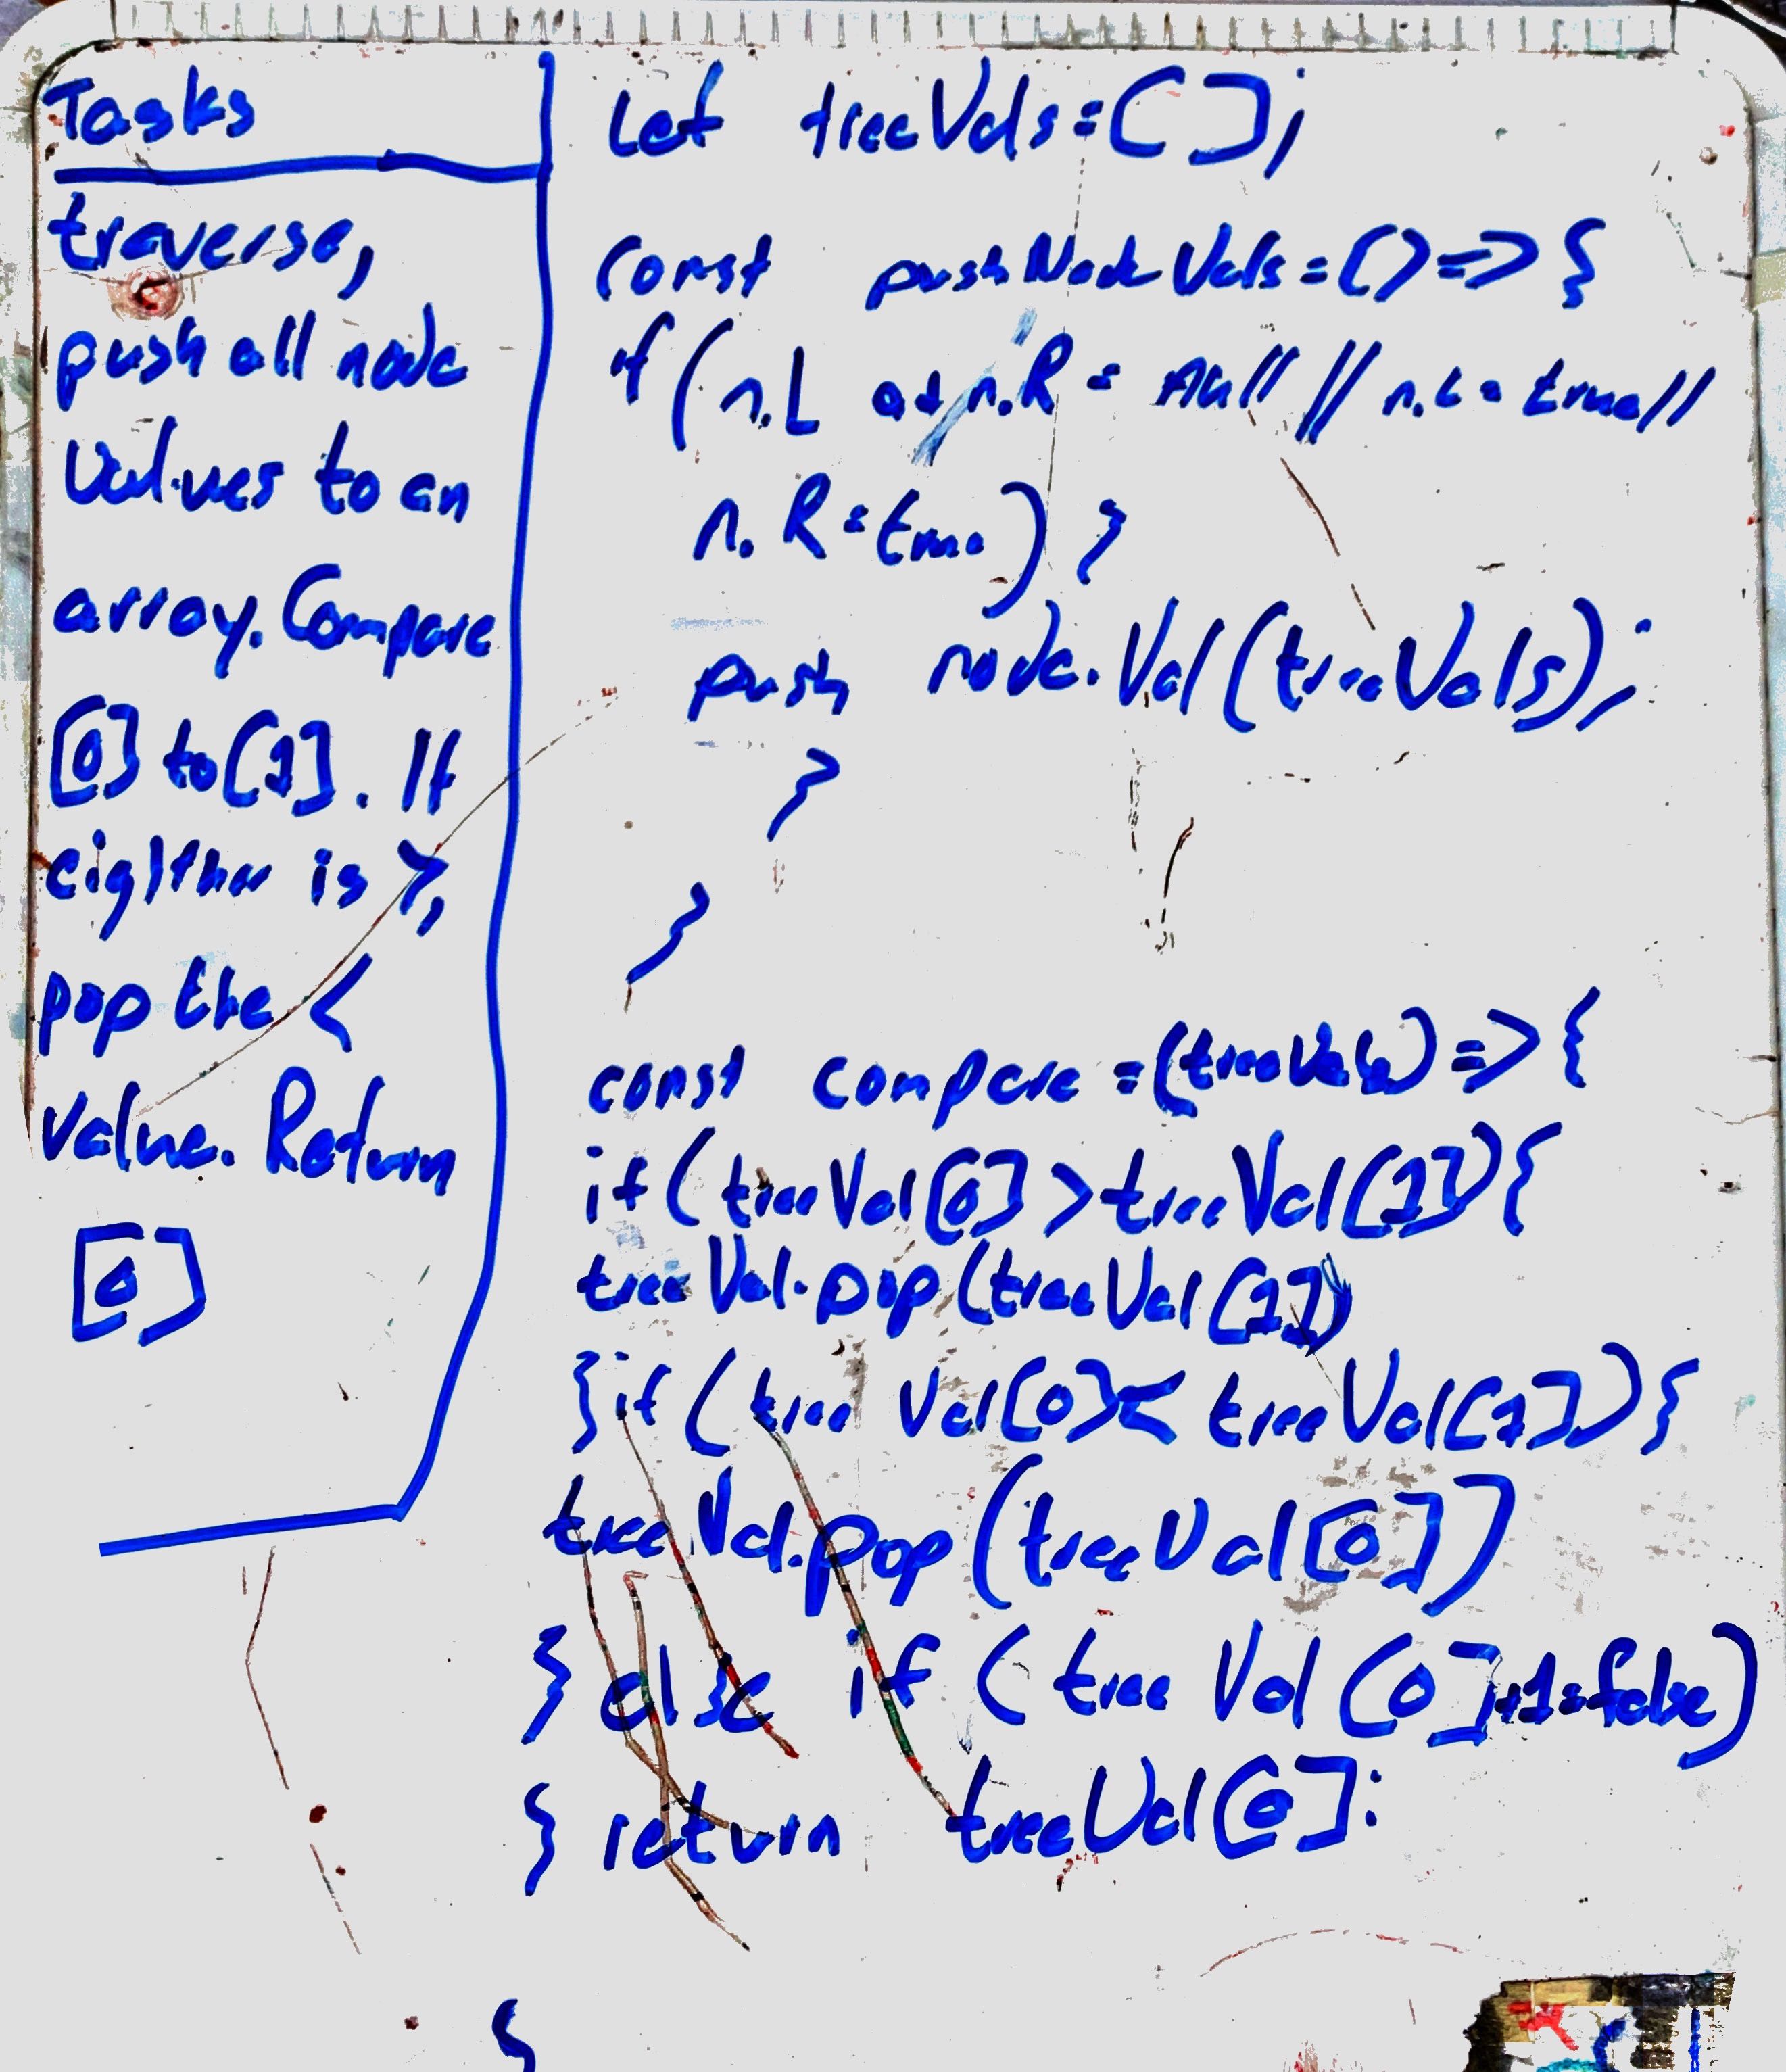 Tasks
traverse,
push all node
Values to an
array. Compare
[0] to [1]. If
eigther is >,
pop the <
value. Return
[0]
Let treeVals=[];
const pushNodeVals=()=>{
if(n.L n.R = null || n.L = true ||
n.R = true) }
push node.Val(treeVals);
}
}
const compare =(treeVals)=>{
if(treeVal[0]>treeVal[1]){
treeVal.pop(treeVal[1])
}if(treeVal[0]<treeVal[1]){
treeVal.pop(treeVal[0])
} else if (treeVal[0]+1=false)
} return treeVal[0];
}